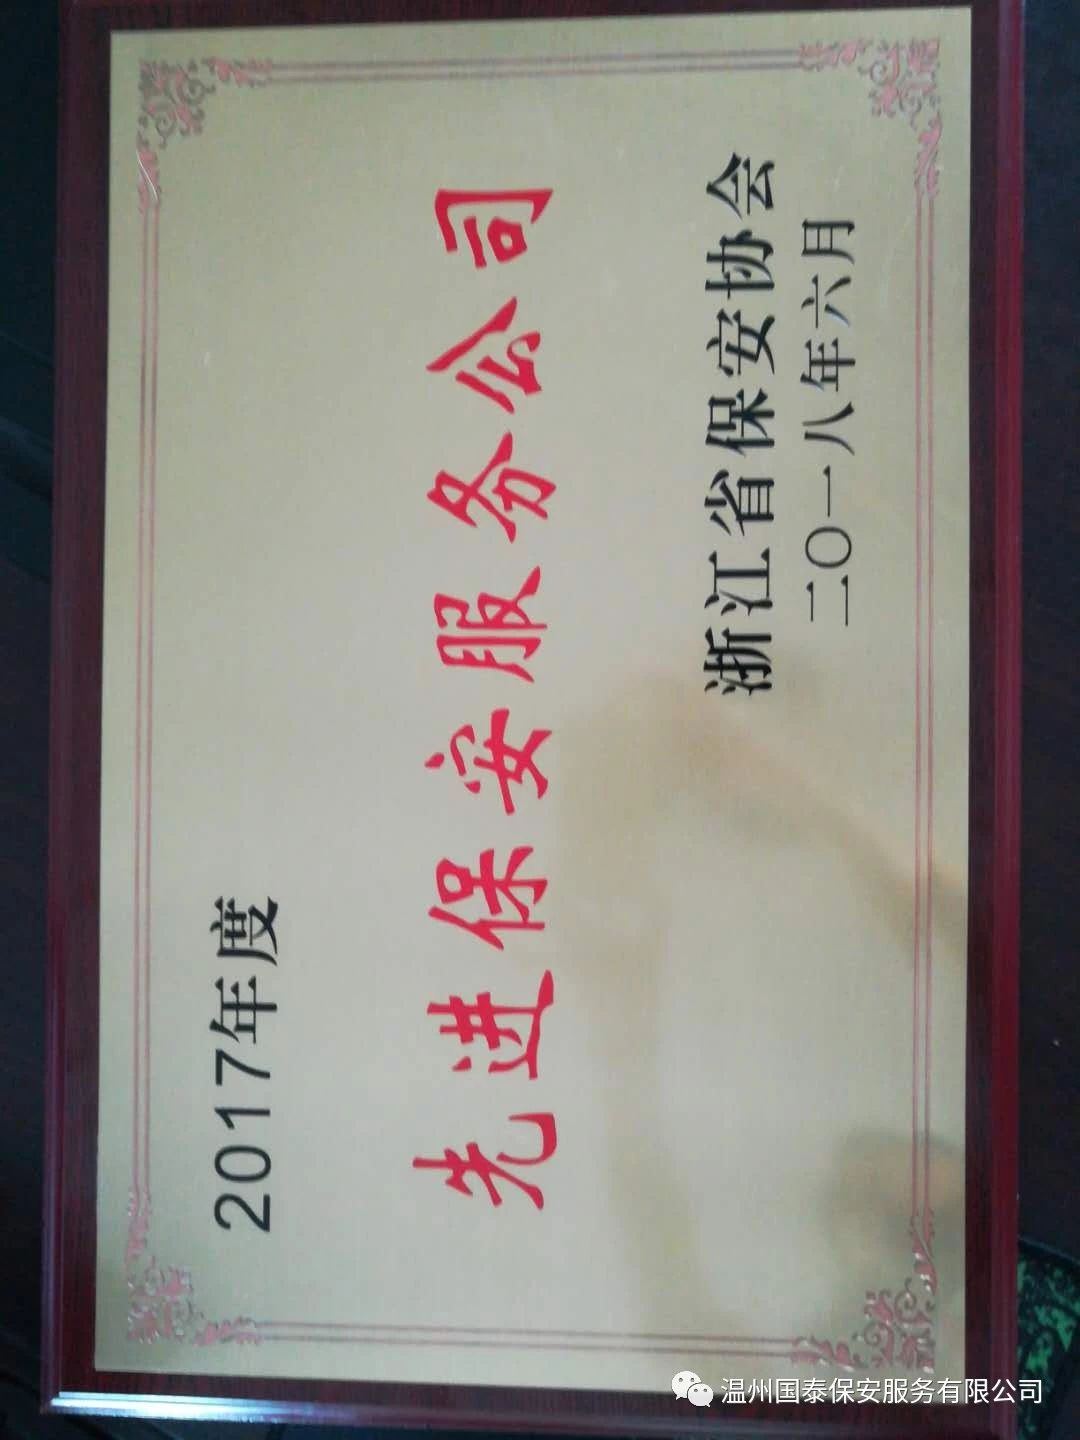 2017年度
先进保安服务公司
浙江省保安协会
二〇一八年六月
温州国泰保安服务有限公司